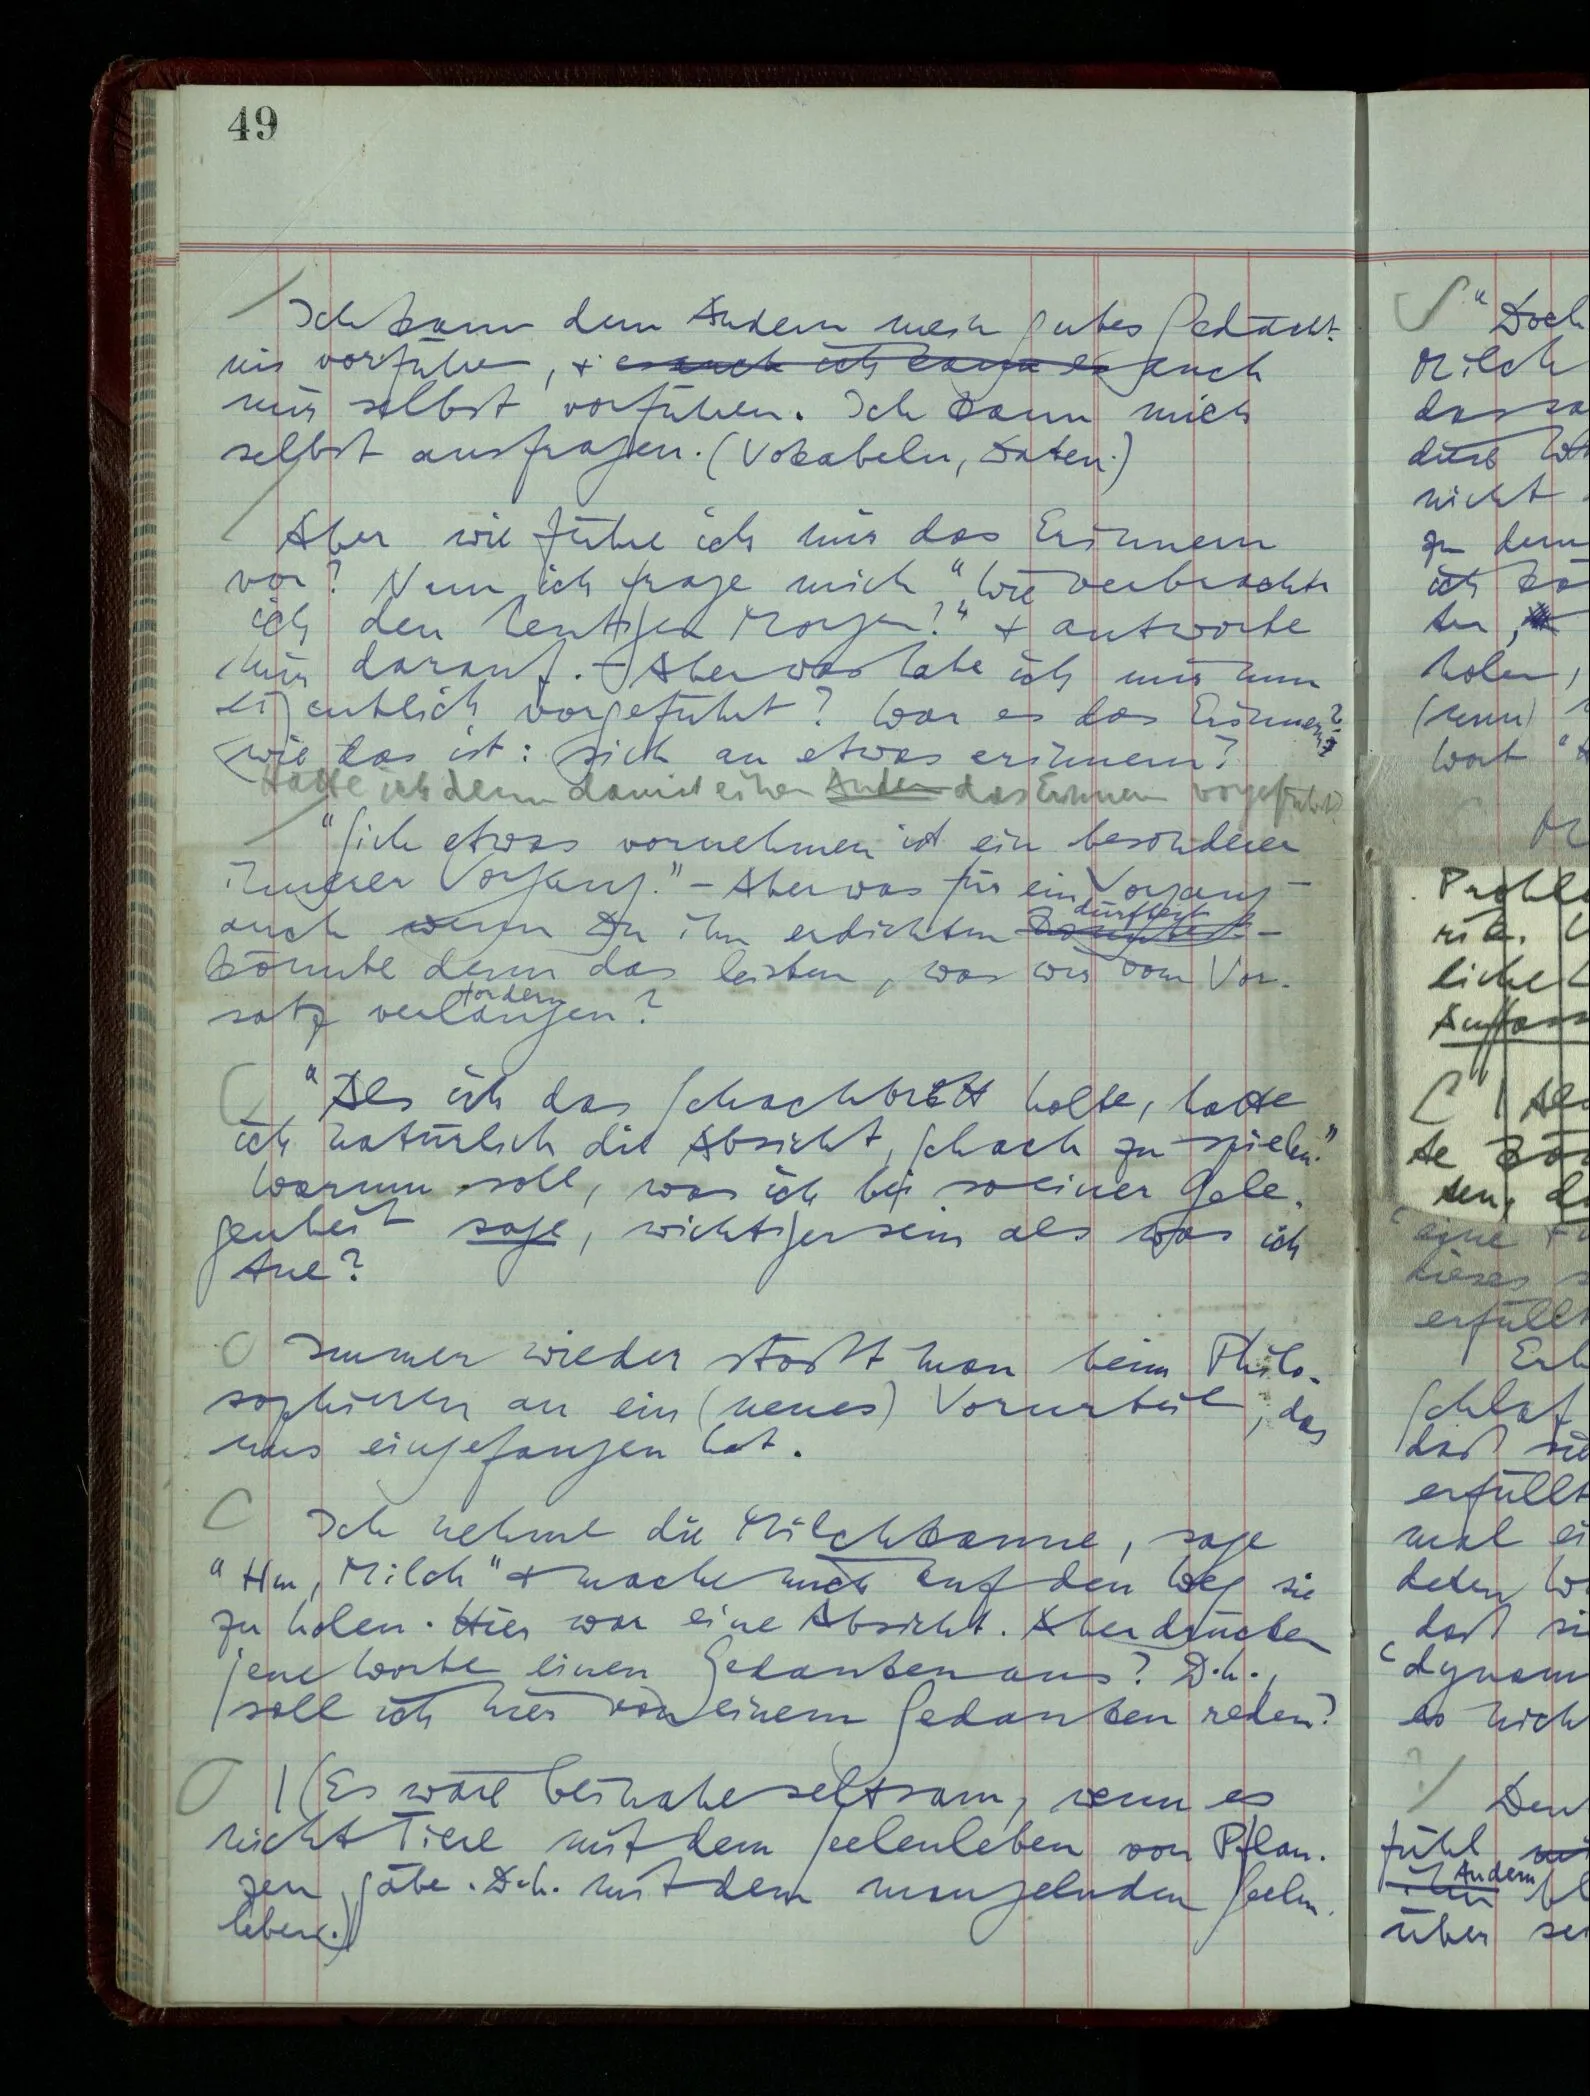 49
Ich kann dem Andern mein gutes Gedächt-
nis vorführen, + auch ich kann es auch
mir selbst vorführen. Ich kann mich
selbst ausfragen. (Vokabeln, Daten.)
Aber wie führe ich mir das Erinnern
vor? Nun ich frage mich "Wie verbrachte
ich den heutigen Morgen?" + antworte
mir darauf. – Aber was habe ich mir nun
eigentlich vorgeführt? War es das Erinnern?
wie das ist: sich an etwas erinnern?
Hätte ich denn damit einen Andern das Erinnern vorgeführt?
"Sich etwas vornehmen ist ein besonderer
innerer Vorgang." – Aber was für ein Vorgang –
dürftest
auch wenn Du ihn erdichten könntest –
könnte denn das leisten, was wir vom Vor-
fordern
satz verlangen?
"Als ich das Schachbrett holte, hatte
ich natürlich die Absicht, Schach zu spielen."
Warum soll, was ich bei so einer Gele-
genheit sage, wichtiger sein als was ich
tue?
Immer wieder stößt man beim Philo-
sophieren an ein (neues) Vorurteil, das
uns eingefangen hat.
Ich nehme die Milchkanne, sage
"Hm, Milch" + mache mich auf den Weg sie
zu holen. Hier war eine Absicht. Aber drücken
jene Worte einen Gedanken aus? D.h.,
soll ich hier von einem Gedanken reden?
(Es wäre beinahe seltsam, wenn es
nicht Tiere mit dem Seelenleben von Pflan-
zen gäbe. D.h. mit dem mangelnden Seelen-
leben.)
"Doch
Milch
nicht
zu dem
ich
holen,
Wort
eine
dieses
erfüllt
Schlaf
daß sie
erfüllt
mal
daß
es nich
Den
fühl
Andern
ihm
über